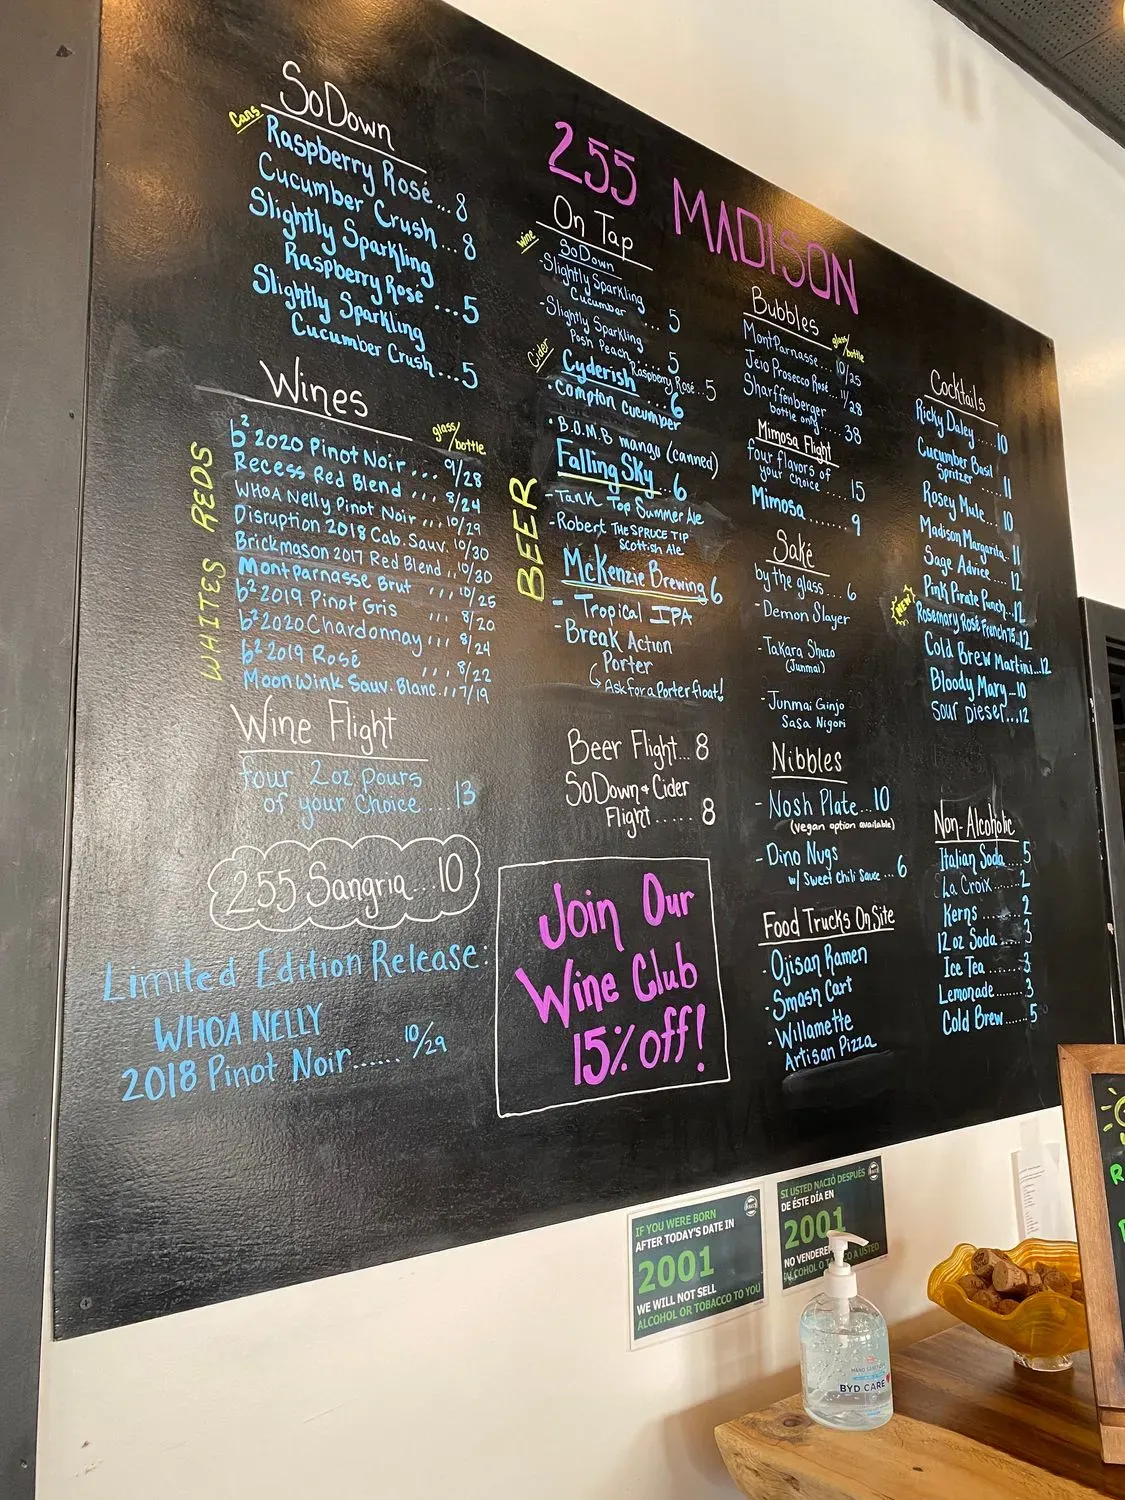 255 MADISON
SoDown
Cans
Raspberry Rosé... 8
Cucumber Crush... 8
Slightly Sparkling
Raspberry Rosé ...5
Slightly Sparkling
Cucumber Crush...5
Wines
glass/bottle
WHITES REDS
b² 2020 Pinot Noir... 9/28
Recess Red Blend ... 8/24
WHOA Nelly Pinot Noir... 10/29
Disruption 2018 Cab. Sauv. 10/30
Brickmason 2017 Red Blend .. 10/30
Montparnasse Brut ... 10/25
b² 2019 Pinot Gris 8/20
b² 2020 Chardonnay... 8/24
b² 2019 Rosé ... 8/22
Moon Wink Sauv. Blanc... 7/19
Wine Flight
four 2oz pours
of your choice ... 13
255 Sangria...10
Limited Edition Release:
WHOA NELLY
2018 Pinot Noir...... 10/29
On Tap
wine
SoDown
-Slightly Sparkling
Cucumber ... 5
-Slightly Sparkling
Posh Peach ... 5
Raspberry Rosé..5
Cider
Cyderish ... 6
·Compton Cucumber
·B.O.M.B mango (canned)
BEER
Falling Sky... 6
-Tank Top Summer Ale
-Robert THE SPRUCE TIP
Scottish Ale
McKenzie Brewing 6
- Tropical IPA
-Break Action
Porter
Ask for a Porter float!
Beer Flight... 8
SoDown + Cider
Flight...... 8
Join Our
Wine Club
15% off!
Bubbles
glass/bottle
MontParnasse... 10/25
Jeio Prosecco Rosé.. 11/28
Sharffenberger
bottle only.... 38
Mimosa Flight
four flavors of
your choice .... 15
Mimosa....... 9
Saké
by the glass... 6
-Demon Slayer
-Takara Shuzo
(Junmai)
-Junmai Ginjo
SaSa Nigori
Nibbles
- Nosh Plate...10
(vegan option available)
-Dino Nugs
w/ Sweet Chili Sauce... 6
Food Trucks On Site
·Ojisan Ramen
·Smash Cart
·Willamette
Artisan Pizza
Cocktails
Ricky Daley.... 10
Cucumber Basil
Spritzer..... 11
Rosey Mule... 10
Madison Margarita.. 11
Sage Advice.... 12
Pink Pirate Punch..12
NEW!
Rosemary Rosé French 75..12
Cold Brew Martini...12
Bloody Mary..10
Sour Diesel...12
Non-Alcoholic
Italian Soda....5
La Croix......2
Kerns ........2
12oz Soda.....3
Ice Tea.......3
Lemonade......3
Cold Brew......5
IF YOU WERE BORN
AFTER TODAY'S DATE IN
2001
WE WILL NOT SELL
ALCOHOL OR TOBACCO TO YOU
SI USTED NACIÓ DESPUÉS
DE ÉSTE DÍA EN
2001
NO VENDERE
A USTED
HAND SANITIZER
BYD CARE